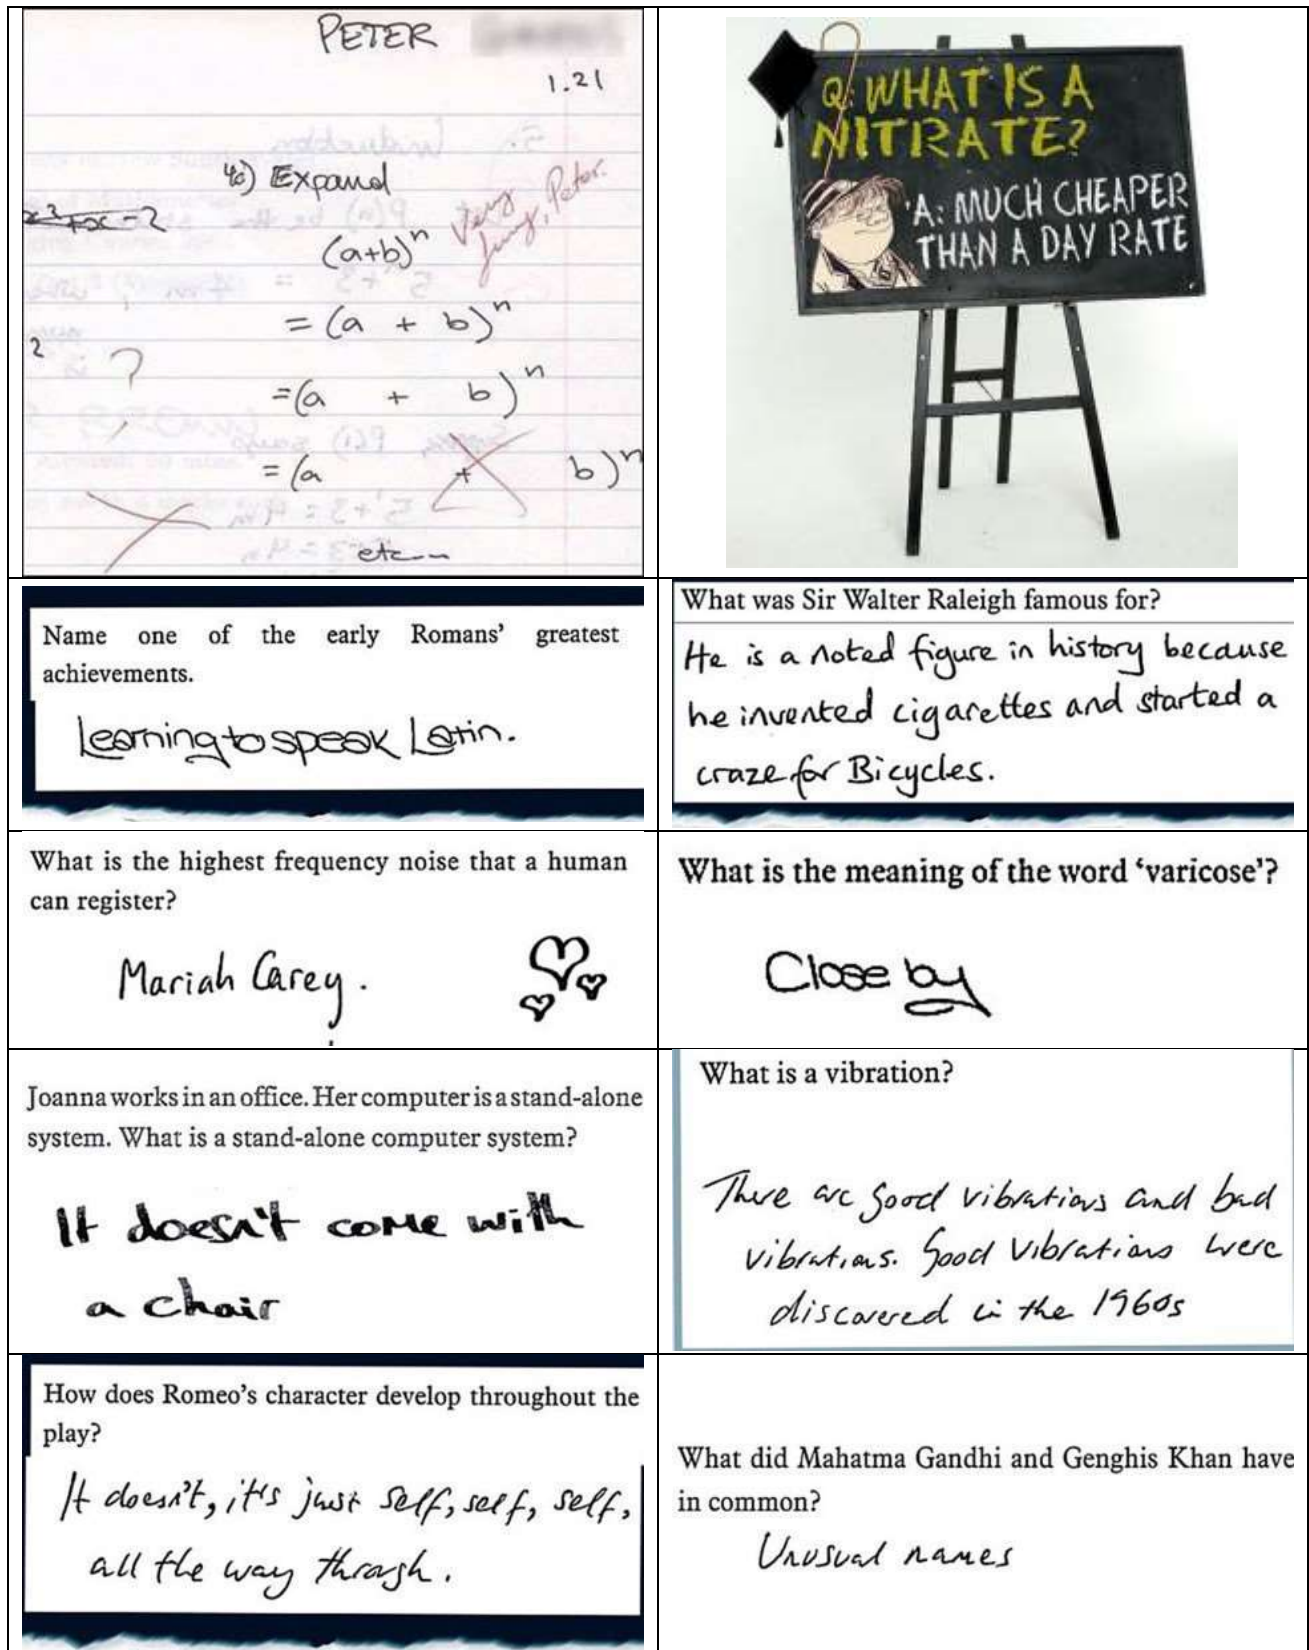 PETER
1.21
4c) Expand
x² + x - 2
Very
funny, Peter.
(a+b)ⁿ
= (a + b)ⁿ
2
?
= (a + b)ⁿ
= (a + b)ⁿ
etc...
Q: WHAT IS A
NITRATE?
A: MUCH CHEAPER
THAN A DAY RATE
Name one of the early Romans' greatest
achievements.
Learning to speak Latin.
What was Sir Walter Raleigh famous for?
He is a noted figure in history because
he invented cigarettes and started a
craze for Bicycles.
What is the highest frequency noise that a human
can register?
Mariah Carey.
What is the meaning of the word ‘varicose’?
Close by
Joanna works in an office. Her computer is a stand-alone
system. What is a stand-alone computer system?
It doesn't come with
a chair
What is a vibration?
There are good vibrations and bad
vibrations. Good vibrations were
discovered in the 1960s
How does Romeo's character develop throughout the
play?
It doesn't, it's just self, self, self,
all the way through.
What did Mahatma Gandhi and Genghis Khan have
in common?
Unusual names